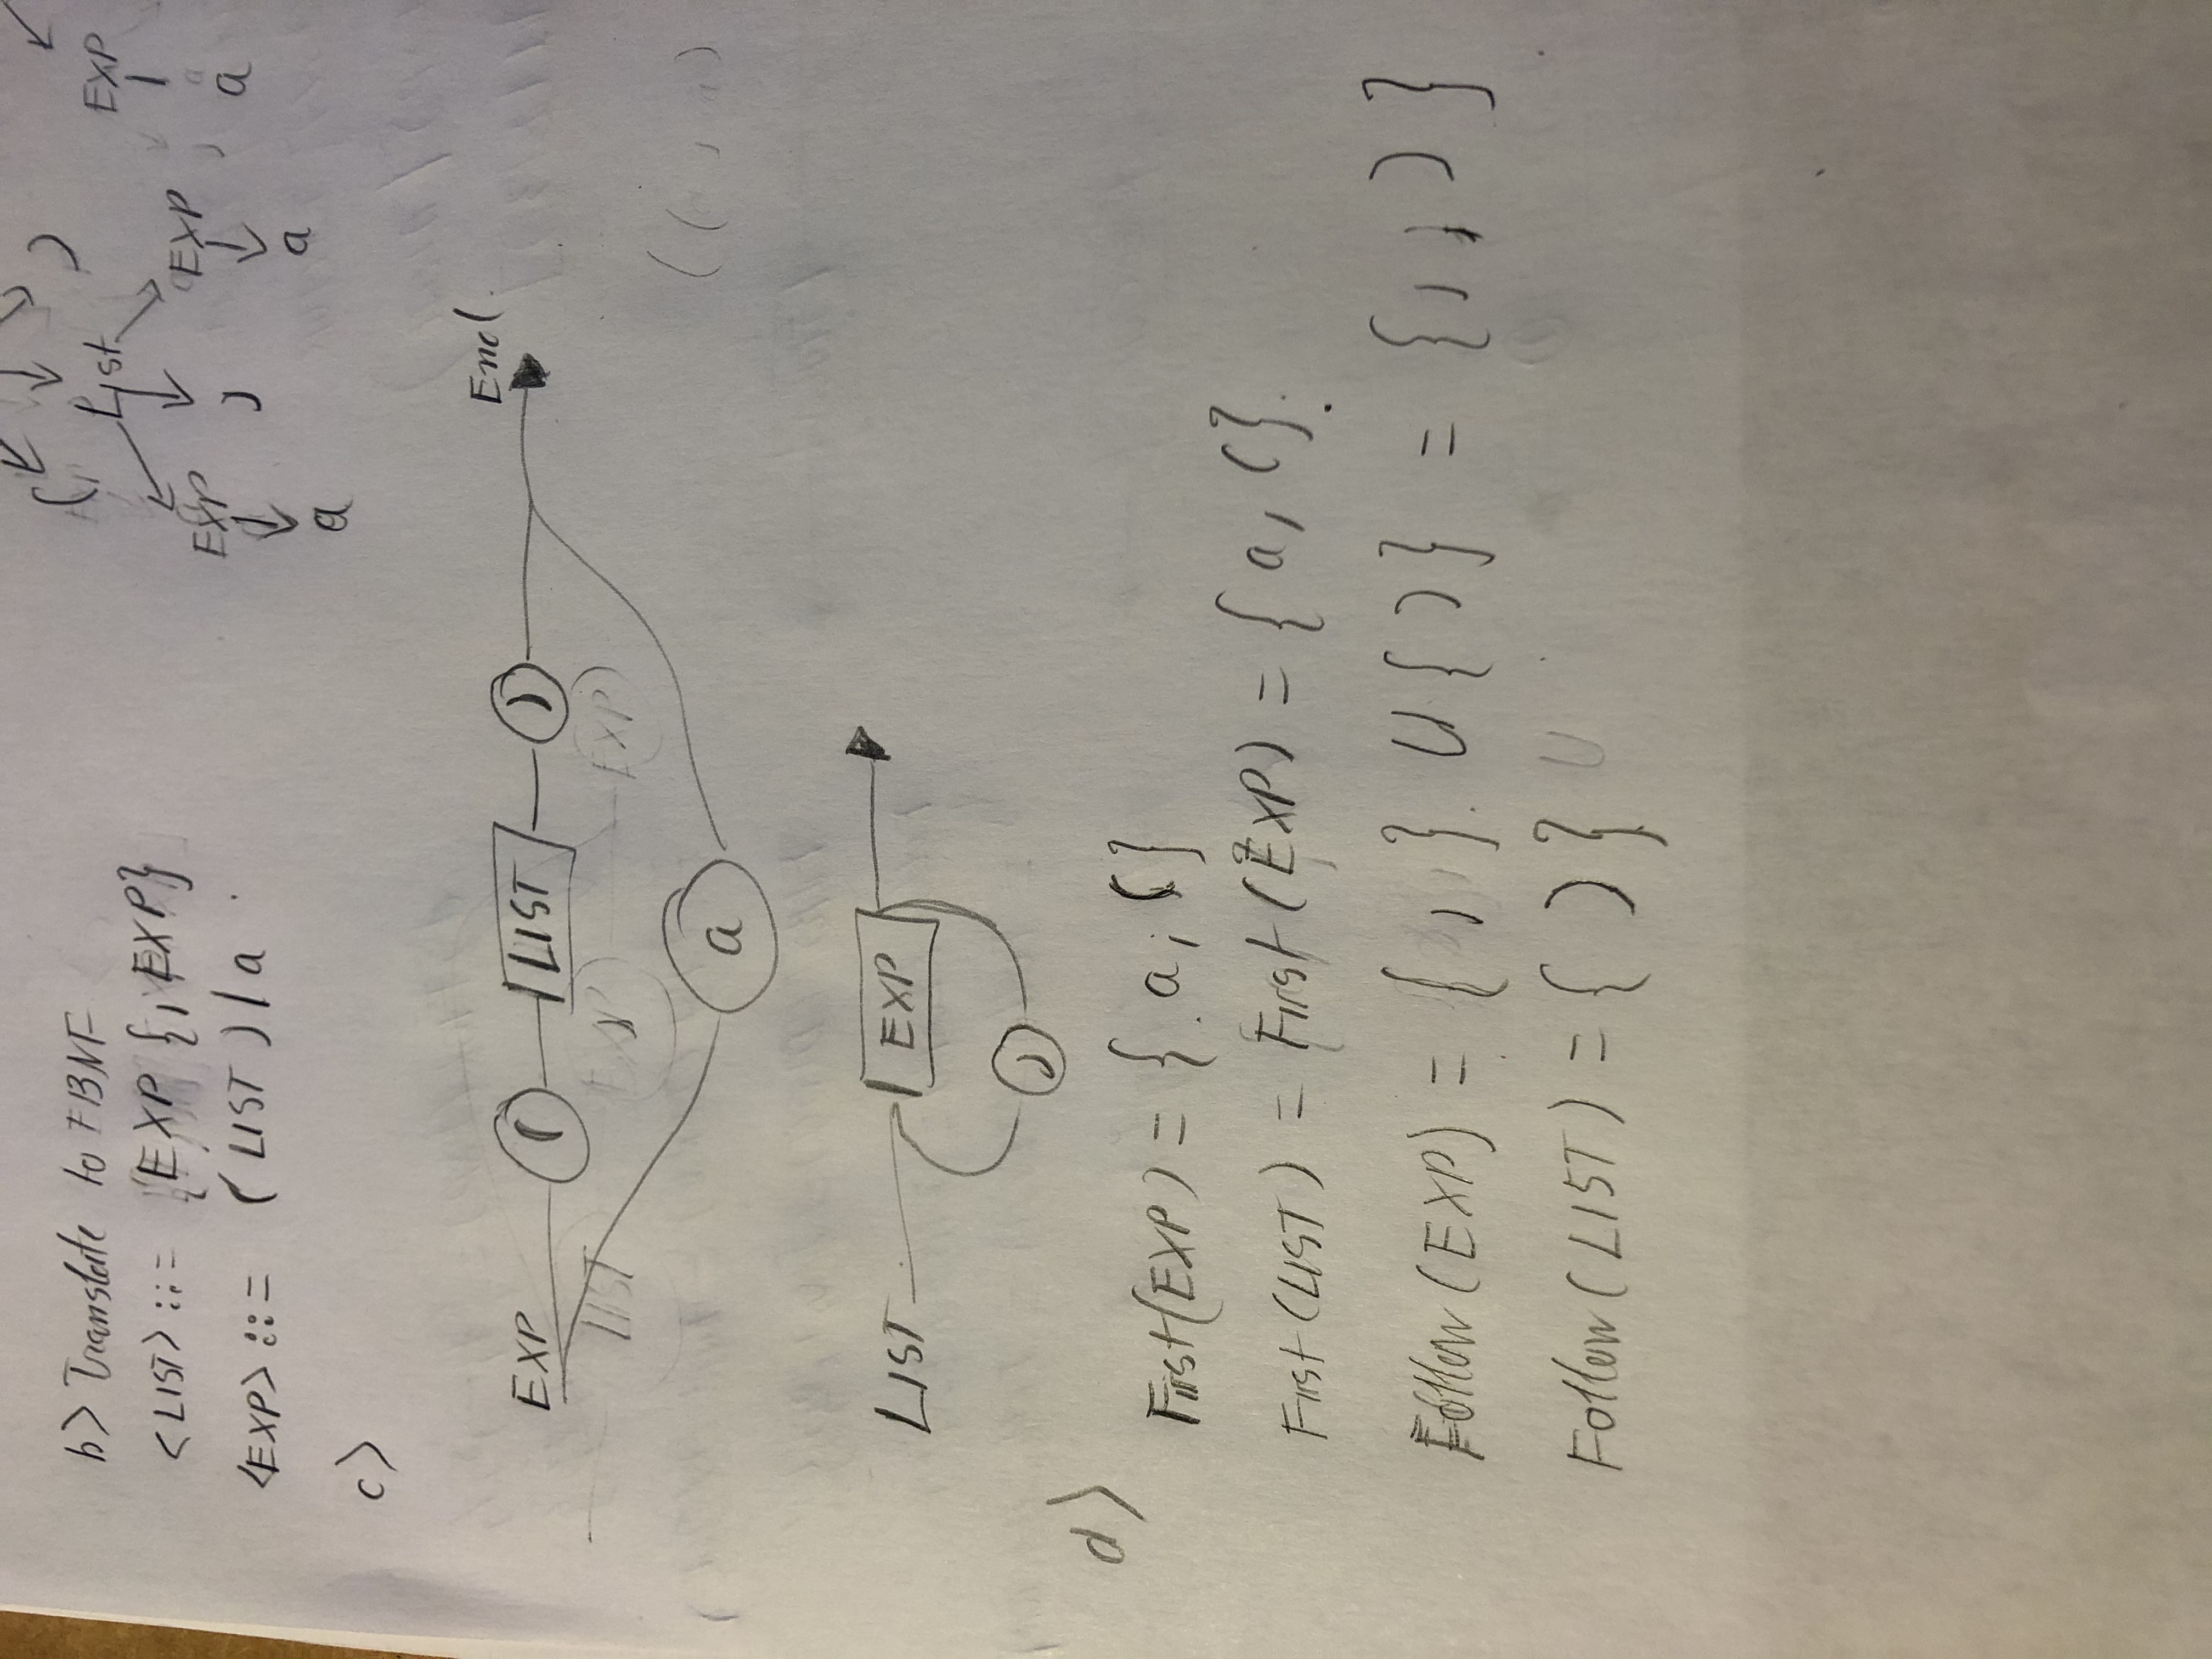 b> Translate to EBNF
<LIST> ::= EXP {, EXP}
<EXP> ::= ( LIST ) | a
( List )
EXP , EXP
a a
EXP
a
c>
EXP ( LIST ) End
a
LIST EXP
,
d>
First(EXP) = { a, ( }
First(LIST) = First(EXP) = { a, ( }.
Follow(EXP) = { , } ∪ { ) } = { , , ) }
Follow(LIST) = { ) }